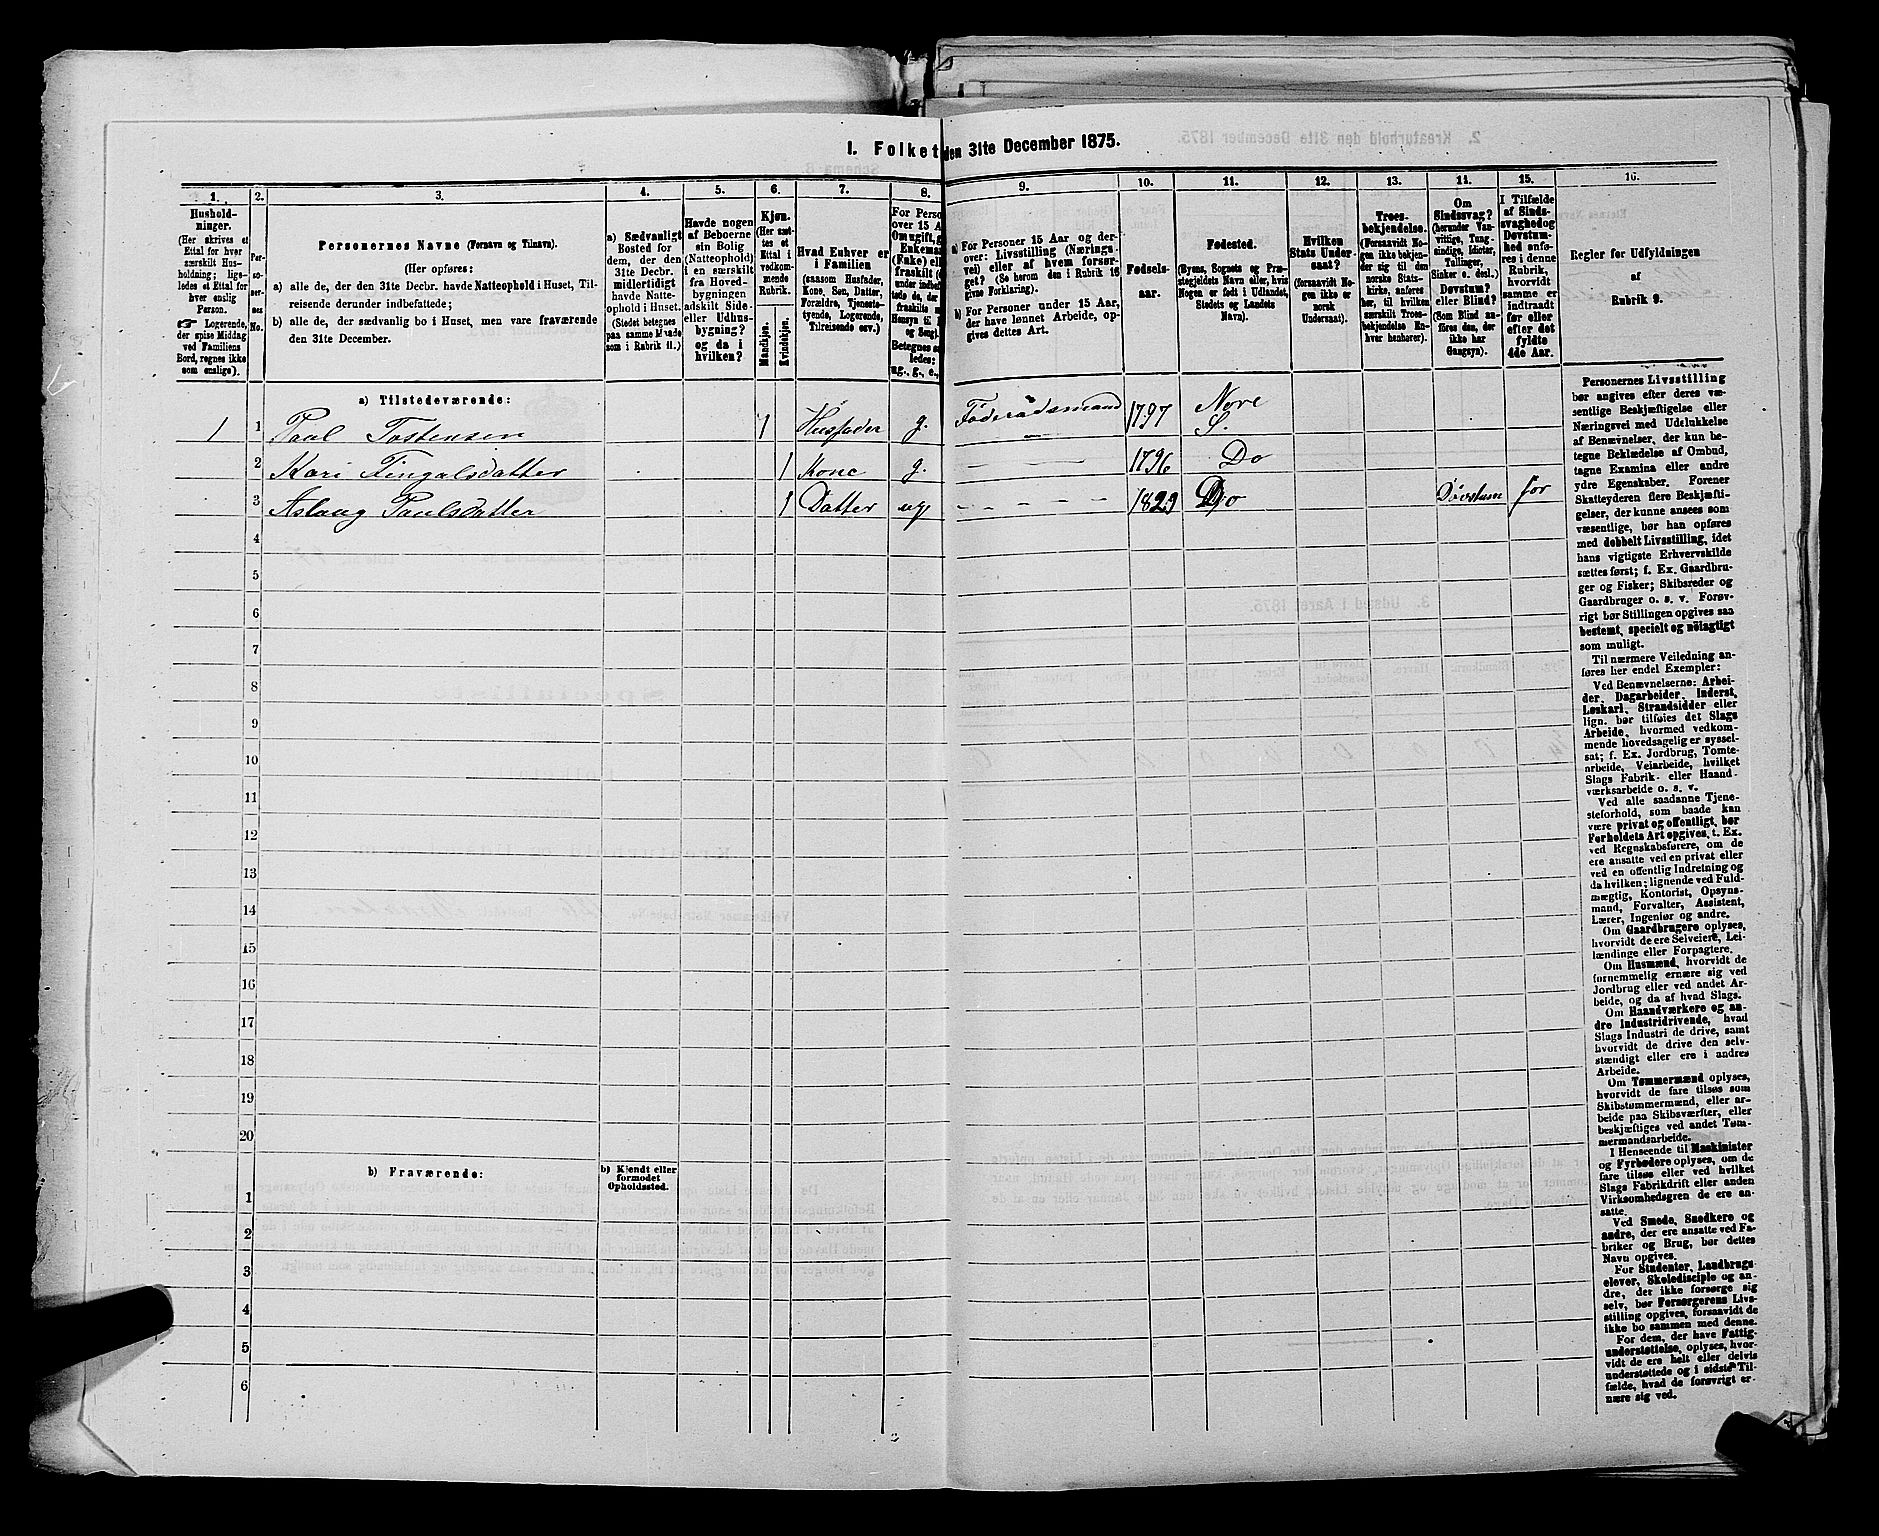 I. Folket den 31te December 1875.
1. 2. 3. 4. 5. 6. 7. 8. 9. 10. 11. 12. 13. 14. 15. 16.
Hushold-
ninger.
(Her skrives et
Ettal for hver
særskilt Hus-
holdning; lige-
ledes et Ettal for
hver enslig
Person.
☞ Logerende,
der spise Middag
ved Familiens
Bord, regnes ikke
som enslige).
Per-
so-
ner-
nes
No.
Personernes Navne (Fornavn og Tilnavn).
(Her opføres:
a) alle de, der den 31te Decbr. havde Natteophold i Huset, Til-
reisende derunder indbefattede;
b) alle de, der sædvanlig bo i Huset, men vare fraværende
den 31te December.
a) Sædvanligt
Bosted for
dem, der den
31te Decbr.
midlertidigt
havde Natte-
ophold i Huset.
(Stedet betegnes
paa samme Maade
som i Rubrik 11.)
Havde nogen
af Beboerne
sin Bolig
(Natteophold)
i en særskilt
fra Hoved-
bygningen
adskilt Side-
eller Udhus-
bygning?
og da i
hvilken?
Kjøn.
(Her sæt-
tes et
Ettal i
vedkom-
mende
Rubrik.
Mandkjøn.
Kvindekjøn.
Hvad Enhver er
i Familien
(saasom Husfader,
Kone, Søn, Datter,
Forældre, Tjeneste-
tyende, Logerende,
Tilreisende osv.)
For Perso
over 15 A
Om ugift, g
Enkema
(Enke) el
fraskilt (
under indbe
tede de, der
fraskilte
Hensyn til
og Seng).
Betegnes sa
ledes:
ug., g., e.,
a) For Personer 15 Aar og der-
over: Livsstilling (Nærings-
vei) eller af hvem forsør-
get? (Se herom den i Rubrik 16
givne Forklaring).
b) For Personer under 15 Aar,
der have lønnet Arbeide, op-
gives dettes Art.
Fødsels-
aar.
Fødested.
(Byens, Sognets og Præ-
stegjeldets Navn eller, hvis
Nogen er født i Udlandet,
Stedets og Landets
Navn).
Hvilken
Stats Under-
saat?
(forsaavidt No-
gen ikke er
norsk
Undersaat).
Troes-
bekjendelse.
(Forsaavidt No-
gen ikke bekjen-
der sig til den
norske Stats-
kirke, anføres
her, til hvilken
særskilt Troes-
bekjendelse En-
hver henhører).
Om
Sindssvag?
(herunder Van-
vittige, Tung-
sindige, Idioter,
Tullinger,
Sinker o. desl.)
Døvstum?
eller Blind?
(Som Blind an-
føres den, der
ikke har
Gangsyn).
I Tilfælde
af Sinds-
svaghed og
Døvstum-
hed anfø-
res i denne
Rubrik,
hvorvidt
samme er
indtraadt
før eller
efter det
fyldte
4de Aar.
Regler for Udfyldningen
af
Rubrik 9.
a) Tilstedeværende:
1 1 Paul Tostensen 1 Husfader g. Föderådsmand 1797 Nore S.
2 Kari Fingalsdatter 1 Kone g. — — — 1796 Do
3 Aslaug Paulsdatter 1 Datter ug. - - - - 1829 Do Døvstum for
4
5
6
7
8
9
10
11
12
13
14
15
16
17
18
19
20
b) Fraværende: b) Kjendt eller
formodet
Opholdssted.
1
2
3
4
5
6
Personernes Livsstilling
bør angives efter deres væ-
sentlige Beskjæftigelse eller
Næringsvei med Udelukkelse
af Benævnelser, der kun be-
tegne Beklædelse af Ombud,
tagne Examina eller andre
ydre Egenskaber. Forener
Skatteyderen flere Beskjæfti-
gelser, der kunne ansees som
væsentlige, bør han opføres
med dobbelt Livsstilling, idet
hans vigtigste Erhvervskilde
sættes først; f. Ex. Gaardbru-
ger og Fisker; Skibsreder og
Gaardbruger o. s. v. Forøv-
rigt bør Stillingen opgives saa
bestemt, specielt og nöiagtigt
som muligt.
Til nærmere Veiledning an-
føres her endel Exempler:
Ved Benævnelserne: Arbei-
der, Dagarbeider, Inderst,
Løskarl, Strandsidder eller
lign. bør tilføies det Slags
Arbeide, hvormed vedkom-
mende hovedsagelig er syssel-
sat; f. Ex. Jordbrug, Tomte-
arbeide, Veiarbeide, hvilket
Slags Fabrik- eller Haand-
værksarbeide o. s. v.
Ved alle saadanne Tjene-
steforhold, som baade kan
være privat og offentligt, bør
Forholdets Art opgives, t. Ex.
ved Regnskabsførere, om de
ere ansatte ved en privat eller
ved en offentlig Indretning og
da hvilken; lignende ved Fuld-
mægtig, Kontorist, Opsyns-
mand, Forvalter, Assistent,
Lærer, Ingeniør og andre.
Om Gaardbrugere oplyses,
hvorvidt de ere Selveiere, Lei-
lændinge eller Forpagtere.
Om Husmænd, hvorvidt de
fornemmelig ernære sig ved
Jordbrug eller ved andet Ar-
beide, og da af hvad Slags.
Om Haandværkere og an-
dre Industridrivende, hvad
Slags Industri de drive, samt
hvorvidt de drive den selv-
stændigt eller ere i andres
Arbeide.
Om Tømmermænd oplyses,
hvorvidt de fare tilsøs som
Skibstømmermænd, eller ar-
beide paa Skibsværfter, eller
beskjæftiges ved andet Tøm-
mermandsarbeide.
I Henseende til Maskinister
og Fyrbødere oplyses, om de
fare tilsøs eller ved hvilket
Slags Fabrikdrift eller anden
Virksomhedsgren de ere an-
satte.
Ved Smede, Snedkere og
andre, der ere ansatte ved Fa-
briker og Brug, bør dettes
Navn opgives.
For Studenter, Landbrugs-
elever, Skoledisciple og an-
dre, der ikke forsørge sig
selv, bør Forsørgerens Livs-
stilling opgives, forsaavidt de
ikke bo sammen med denne.
For dem, der have Fattig-
understøttelse, oplyses, hvor-
vidt de ere helt eller delvis
understøttede og i sidste Til-
fælde, hvad de forøvrigt er-
nære sig ved.